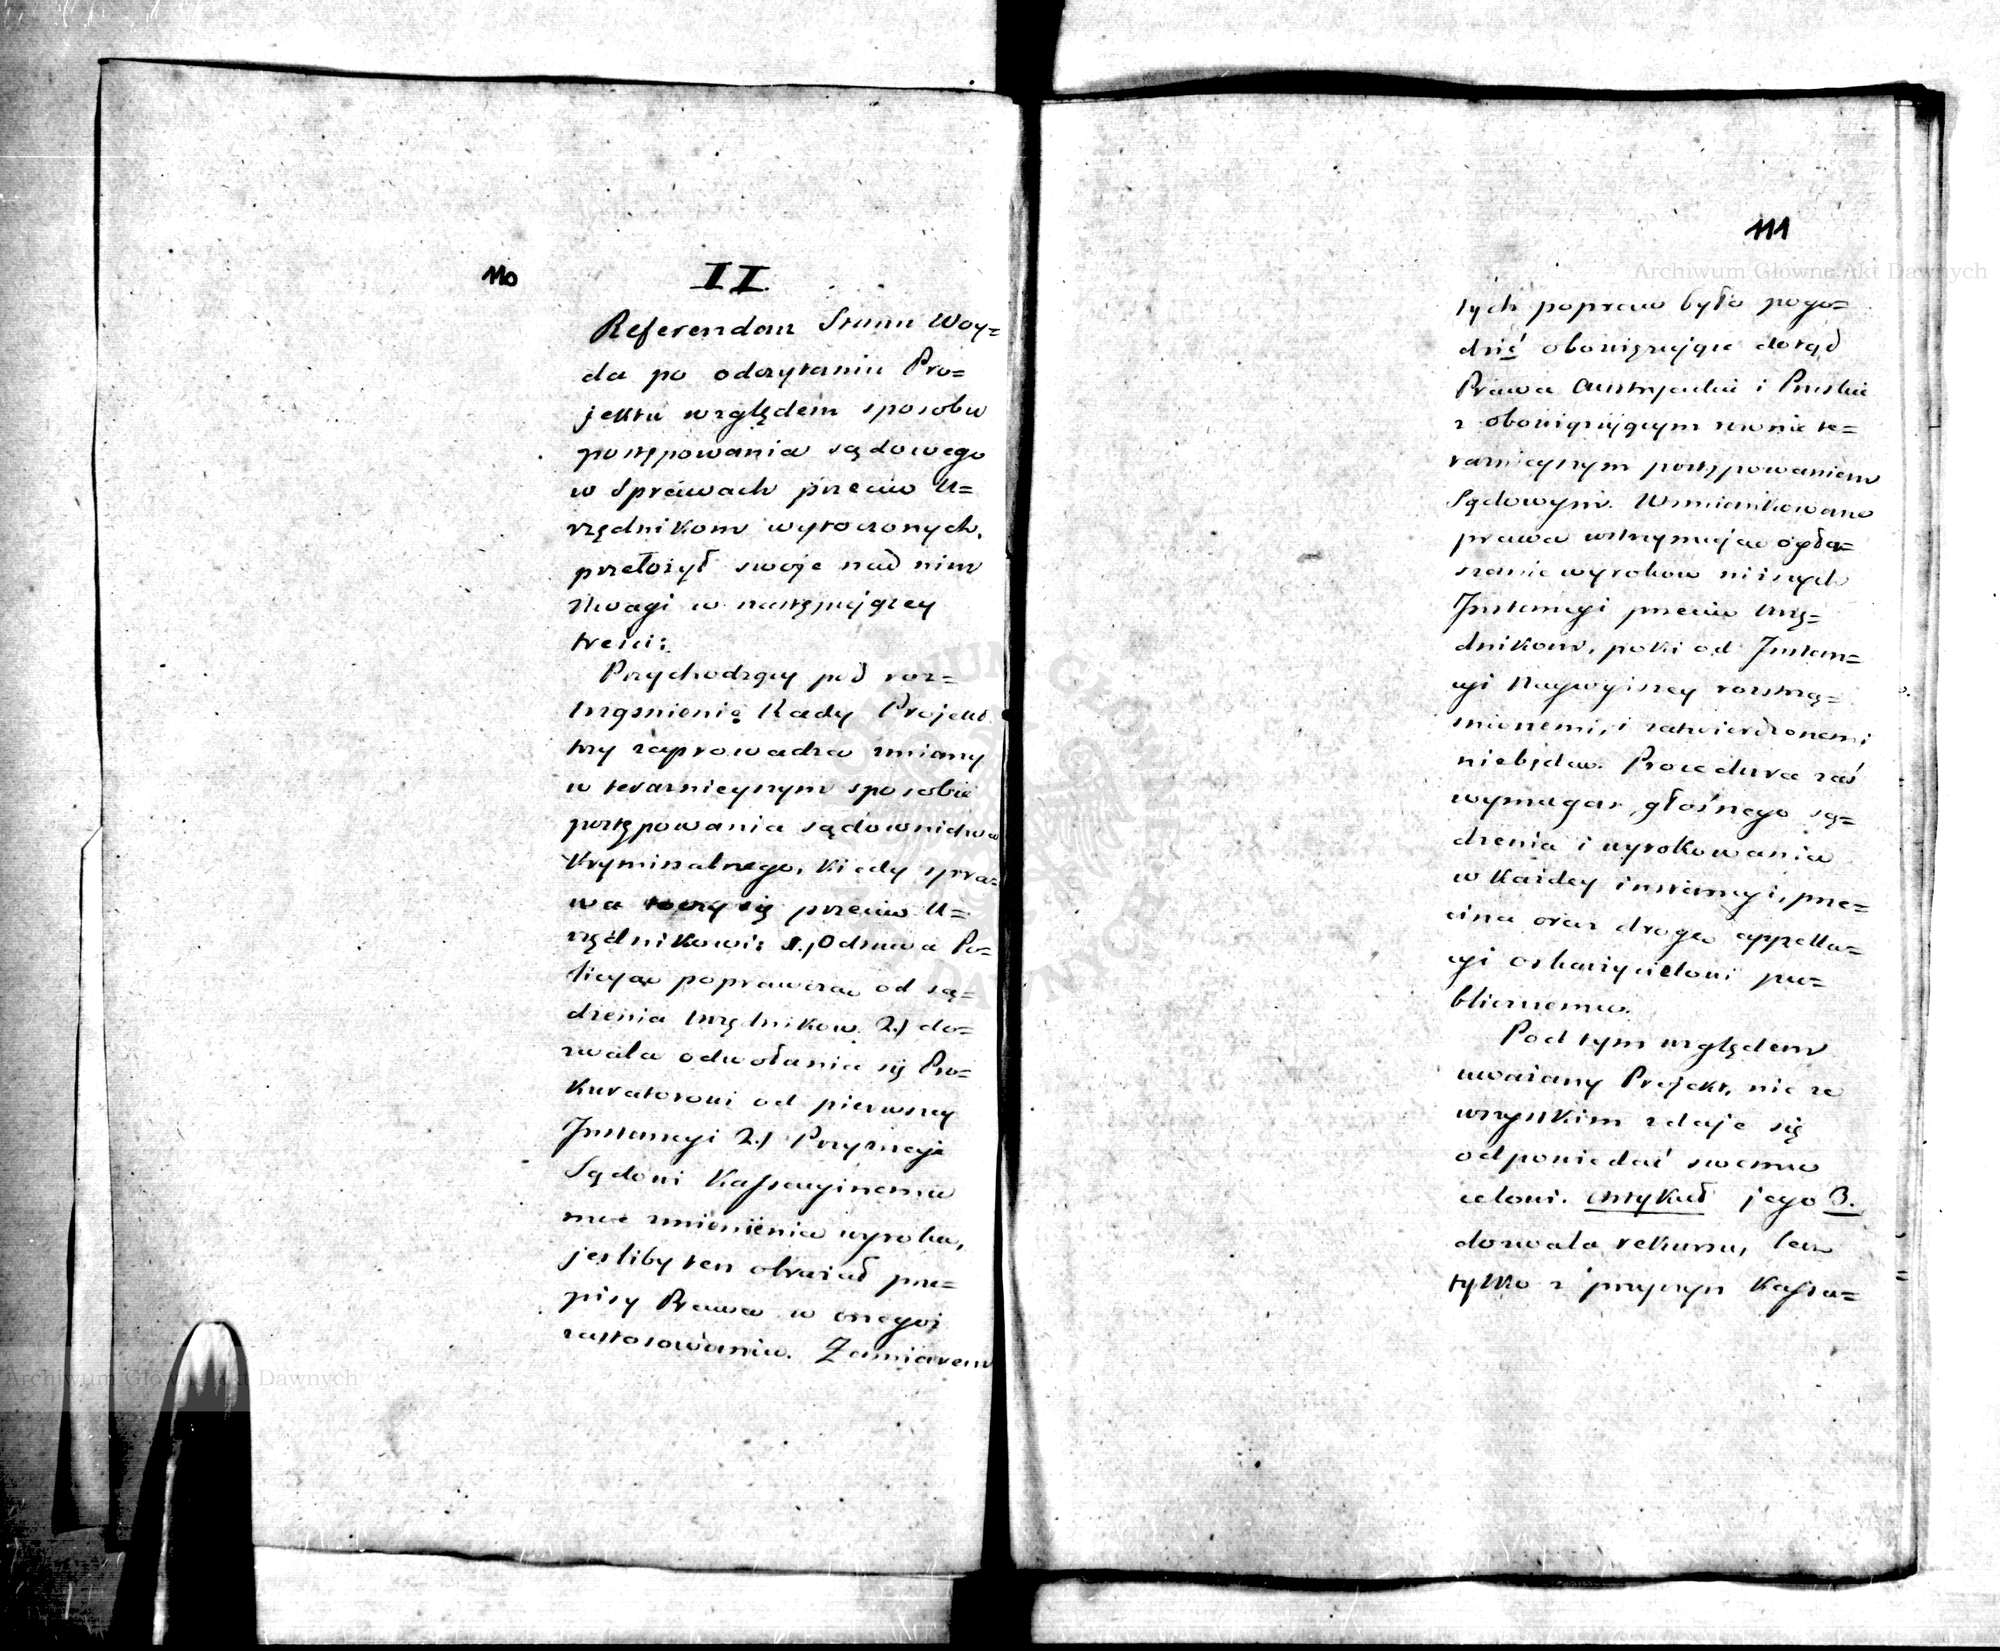 110
II
Referendarz Stanu Woy=
da po odczytaniu Pro=
jektu względem sposobu
postępowania sądowego
w sprawach przeciw U=
rzędnikom wytoczonych,
przełożył swoje nad nim
Uwagi w następującey
treści:
Przychodzący pod roz=
trząśnienię Rady Projekt
trzy zaprowadza zmiany
w terazniejszym sposobie
postępowania sądownictwa
Kryminalnego, Kiedy spra=
wa toczy się przeciw U=
rzędnikowi: 1.) Odsuwa Po=
licyą poprawczą od są=
dzenia Urzędnikow. 2.) do=
zwala odwołania się Pro=
Kuratorowi od pierwszey
Instancyi 2.) Przyznaje
Sądowi Kassacyinemu
moc zmienienia wyroku,
jesliby ten obrażał prze=
pisy Prawa w onegoż
zastosowaniu. Zamiarem
111
tych popraw było pogo=
dzić obowiązujące dotąd
Prawa Austryackie i Pruskie
z obowiązującym rownie te=
raznieyszym postępowaniem
Sądowym. Wzmiankowane
prawa wstrzymują ogła=
szanie wyrokow niższych
Instancyi przeciw Urzę=
dnikom, poki od Instan=
cyi Naywyższey rozstrzą=
śnionemi, i zatwierdzonemi
niebędą. Procedura zaś
wymaga głośnego są=
dzenia i wyrokowania
w Każdey instancyi, prze=
cina oraz drogę appella=
cyi oskarżycielowi pu=
blicznemu.
Pod tym względem
uważany Projekt, nie ze
wszystkim zdaje się
odpowiedać swemu
celowi. Artykuł jego 3.
dozwala rekursu, lecz
tylko z przyczyn Kassa=
Archiwum Główne Akt Dawnych
Archiwum Główne Akt Dawnych
ARCHIWUM GŁÓWNE AKT DAWNYCH